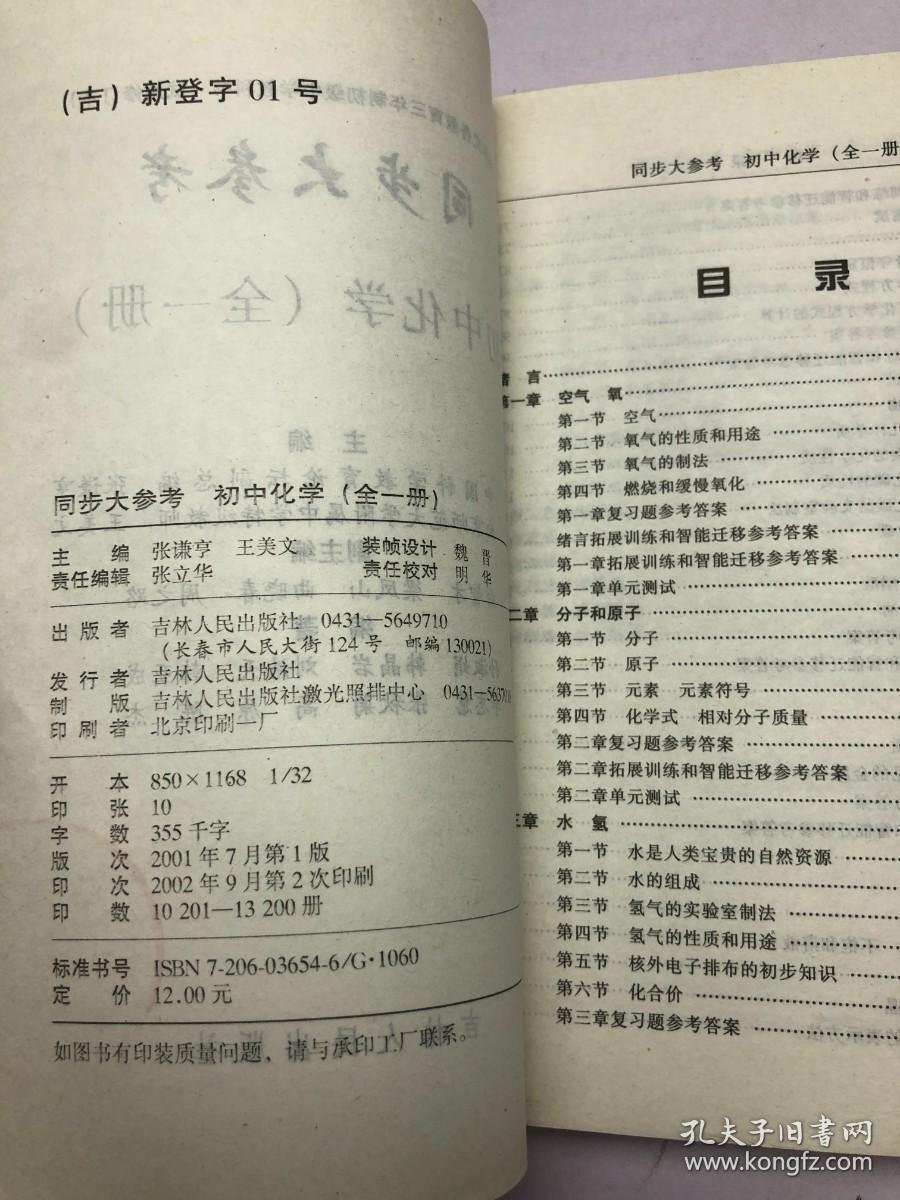 (吉) 新登字 01 号
同步大参考 初中化学 (全一册)
主 编 张谦亨 王美文 装帧设计 魏 晋
责任编辑 张立华 责任校对 明 华
出 版 者 吉林人民出版社 0431—5649710
(长春市人民大街 124 号 邮编 130021)
发 行 者 吉林人民出版社
制 版 吉林人民出版社激光照排中心 0431—5637018
印 刷 者 北京印刷一厂
开 本 850×1168 1/32
印 张 10
字 数 355 千字
版 次 2001 年 7 月第 1 版
印 次 2002 年 9 月第 2 次印刷
印 数 10 201—13 200 册
标准书号 ISBN 7-206-03654-6/G·1060
定 价 12.00 元
如图书有印装质量问题，请与承印工厂联系。
同步大参考 初中化学 (全一册
目 录
绪 言
第一章 空气 氧
第一节 空气
第二节 氧气的性质和用途
第三节 氧气的制法
第四节 燃烧和缓慢氧化
第一章复习题参考答案
绪言拓展训练和智能迁移参考答案
第一章拓展训练和智能迁移参考答案
第一章单元测试
二章 分子和原子
第一节 分子
第二节 原子
第三节 元素 元素符号
第四节 化学式 相对分子质量
第二章复习题参考答案
第二章拓展训练和智能迁移参考答案
第二章单元测试
三章 水 氢
第一节 水是人类宝贵的自然资源
第二节 水的组成
第三节 氢气的实验室制法
第四节 氢气的性质和用途
第五节 核外电子排布的初步知识
第六节 化合价
第三章复习题参考答案
孔夫子旧书网
www.kongfz.com